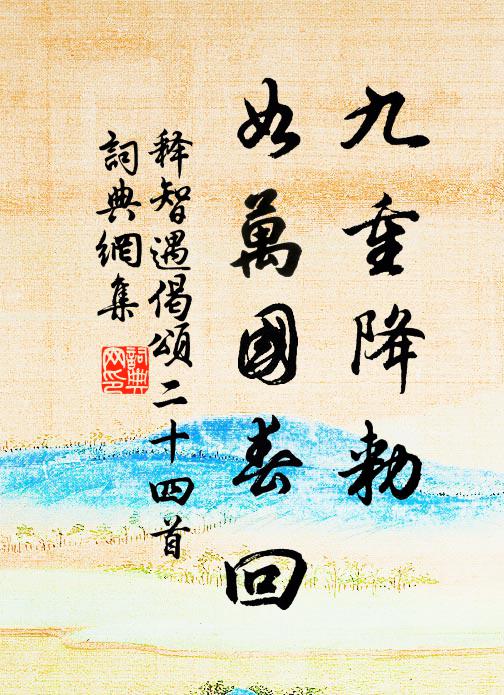 九重降勅
如萬國春回
释智遇偈頌二十四首
詞典網集
詞典網印